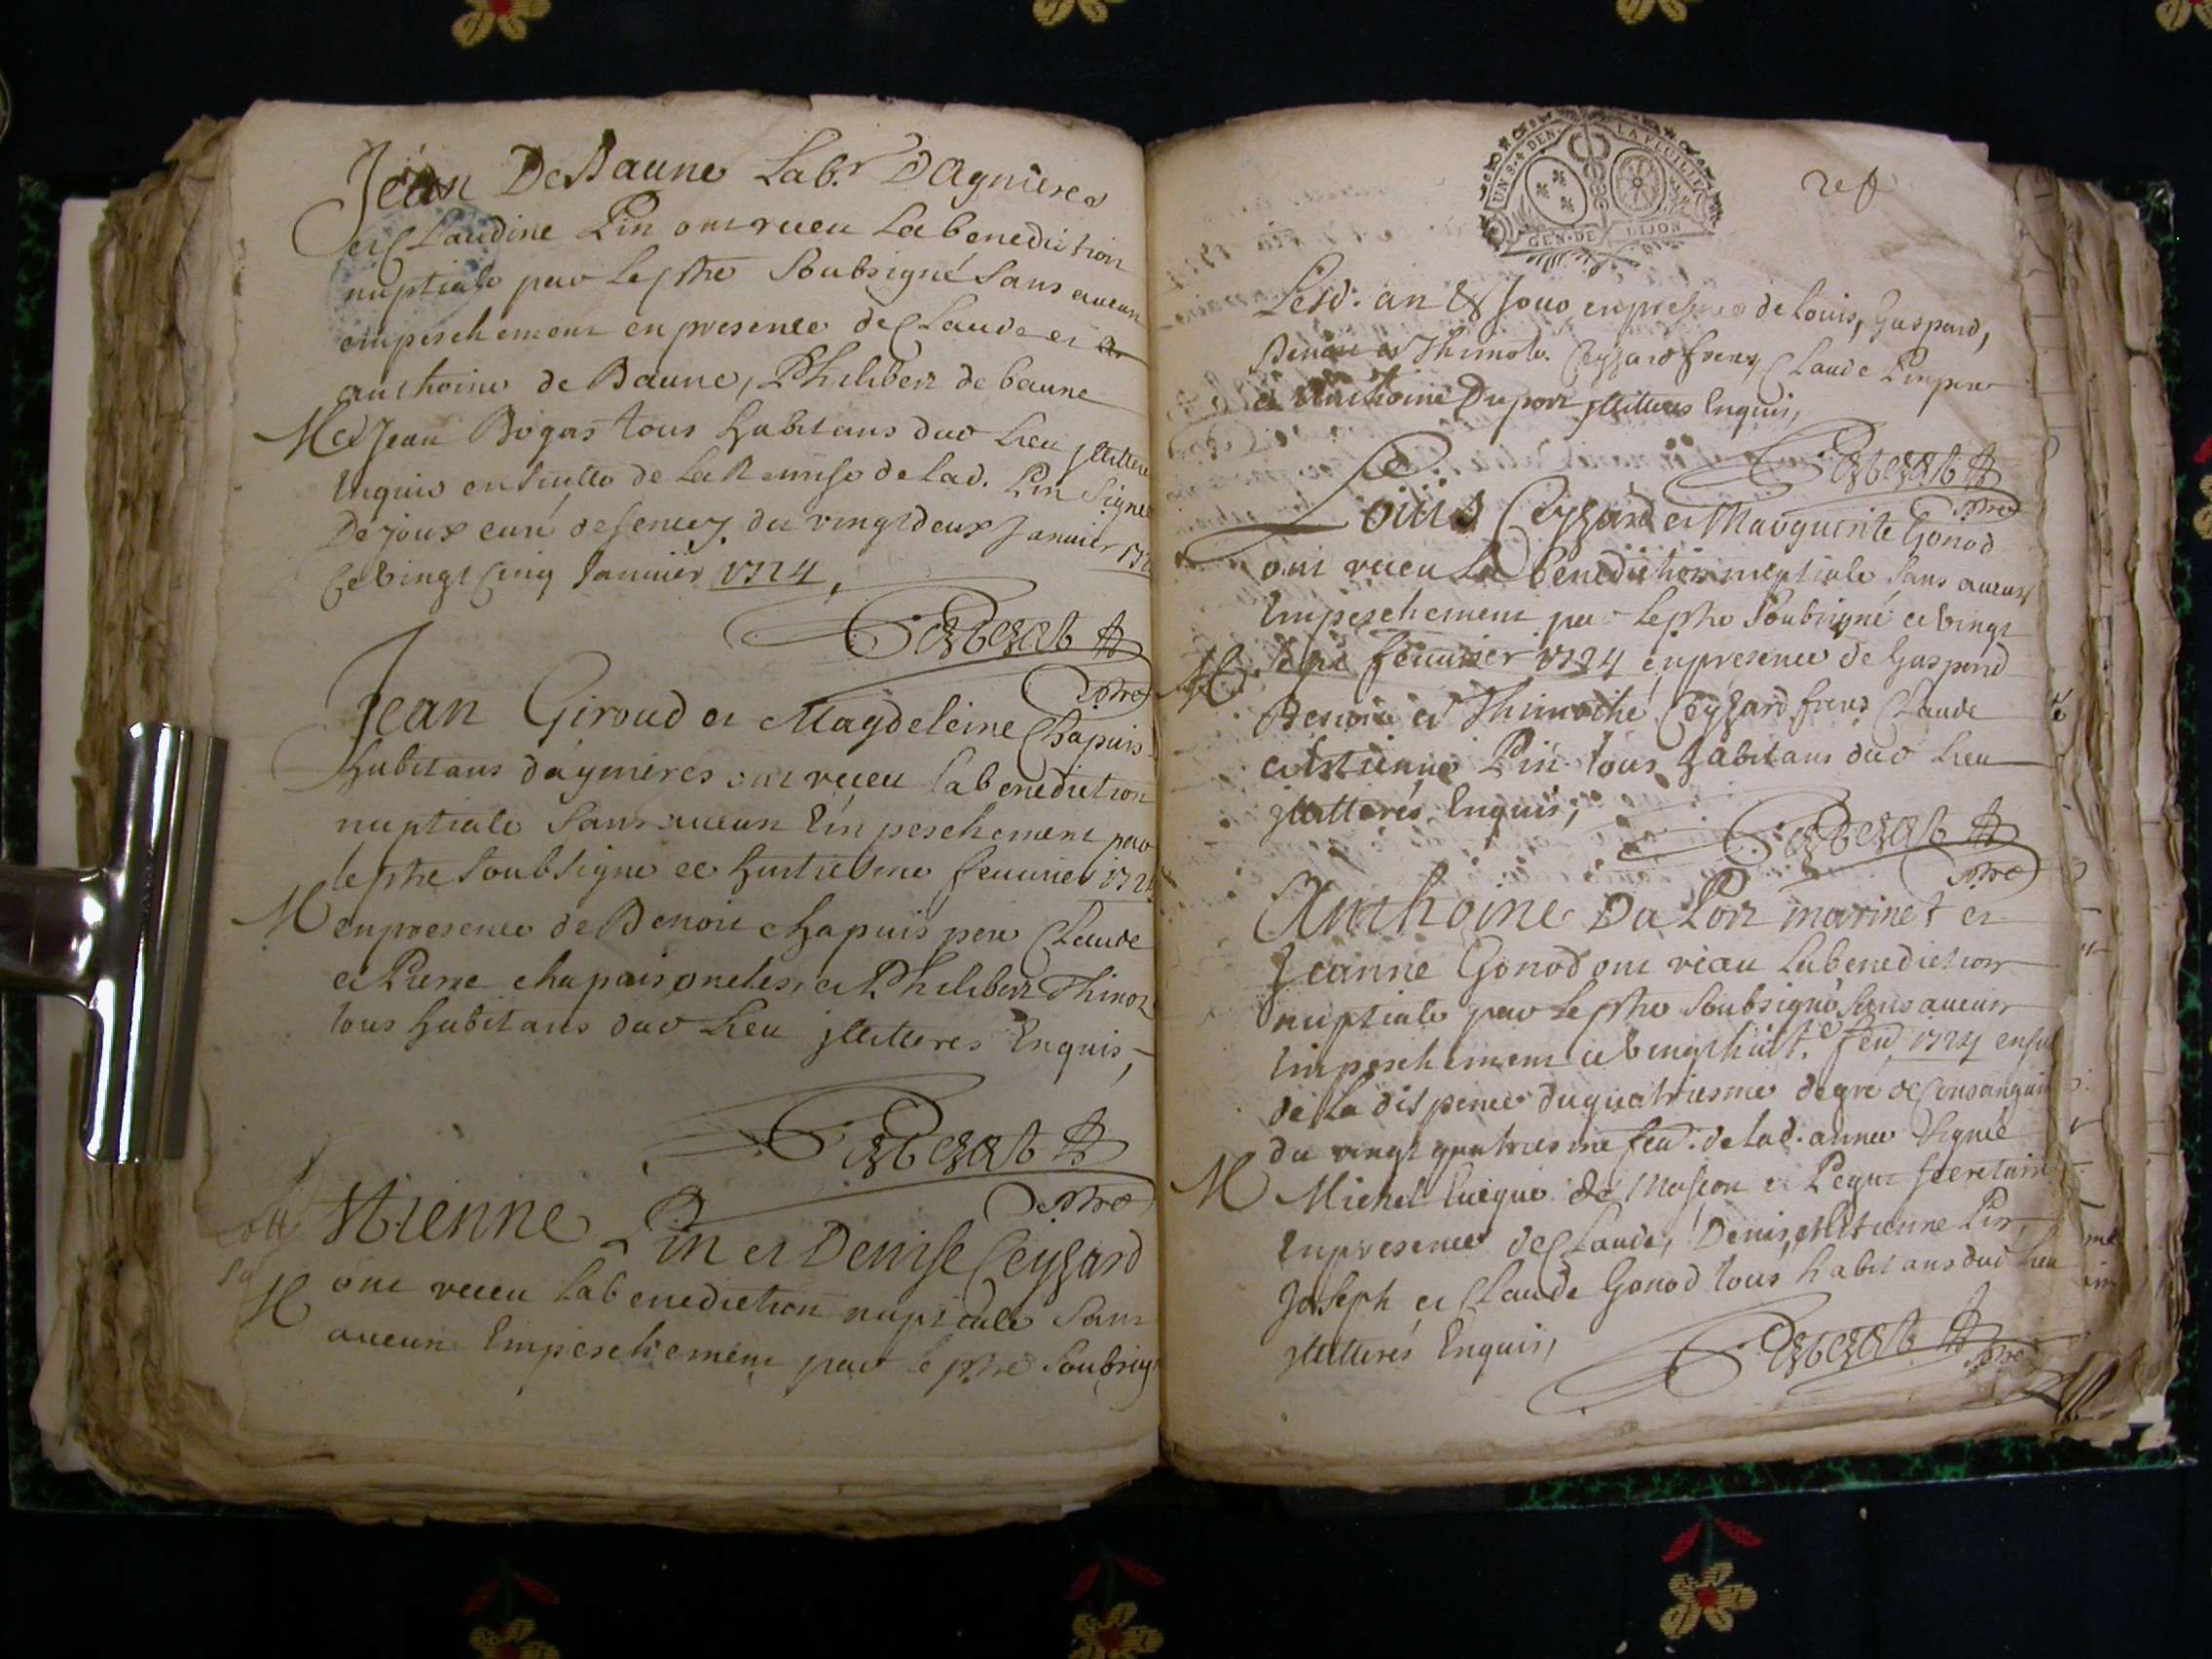 Jean De Baune Lab.r D'Agnieres
et Claudine Pin ont receu La benediction
nuptiale par Le pbre Soubsigné Sans aucun
empeschement en presence de Claude et
anthoine de Baune, Philibert de beaune
M et Jean Bogas tous habitans dud Lieu jlliteres
Enquis ensuitte de La Remise de lad. Pin Signé
Dejoux curé de sencey du vingt deux Janvier
Ce vingt Cinq Janvier 1724,
pbre
Jean Giroud et Magdeleine Chapuis
habitans dagnieres ont receu la benediction
nuptiale Sans aucun Empeschement par
le pbre Soubsigne ce huitiesme feuurier 1724
M en presence de Benoit chapuis pere Claude
et Pierre chapuis oncles, et Philibert Thinon
tous habitans dud Lieu jlliteres Enquis,
pbre
Etienne Pin et Denise Ceyzard
M ont receu la benediction nuptiale Sans
aucun Empeschement par le pbre Soubsig
UN S. 4 DEN. LA FEUILLE
GEN. DE DIJON
Lesd. an & Jour en presence de Louis, Gaspard,
Benoit et Thimoth. Ceyzard freres Claude Pin pere
et Anthoine Duport jlliteres Enquis,
pbre
Louis Ceyzard et Marguerite Gonod
ont receu La benediction nuptiale Sans aucun
Empeschement par Le pbre Soubsigné ce vingt
M sept feuurier 1724 en presence de Gaspard
Benoit et Thimothé Ceyzard freres Claude
et Estienne Pin tous habitans dud Lieu
jlliterés Enquis,
pbre
Anthoine Du Port marinet et
Jeanne Gonod ont receu La benediction
nuptiale par Le pbre Soubsigné Sans aucun
Empeschement ce vingt huit.e feu. 1724 ensu
de La dispence du quatriesme degré de Consanguin
du vingt quatriesme feu. de lad. annee Signé
M Michel Eueque de Mascon et Pegut secretaire
En presence de Claude, Denis, et Etienne Pin,
Joseph et Claude Gonod tous habitans dud Lieu
jlliterés Enquis,
pbre